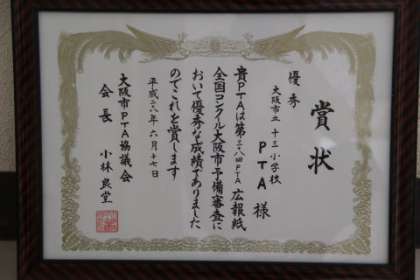 賞状
優秀
大阪市立 十三小学校
PTA様
貴PTAは第三八回PTA広報紙
全国コンクール大阪市予備審査に
おいて優秀な成績でありました
のでこれを賞します
平成二八年六月十七日
大阪市PTA協議会
会長 小林良堂